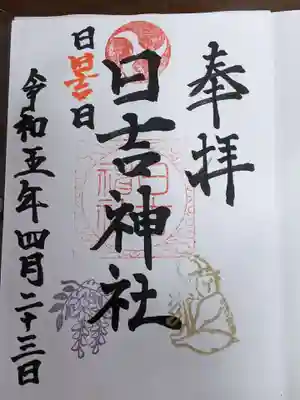 奉拝
日吉神社
日吉日
令和五年四月二十三日